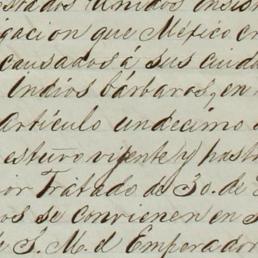 Estados Unidos insis
gacion que México co
causados á sus ciuda
Indios bárbaros, en
Artículo undecimo d
estuvo vigente y hasta
or Tratado de 30. de
os se convienen en
e S. M. el Emperador